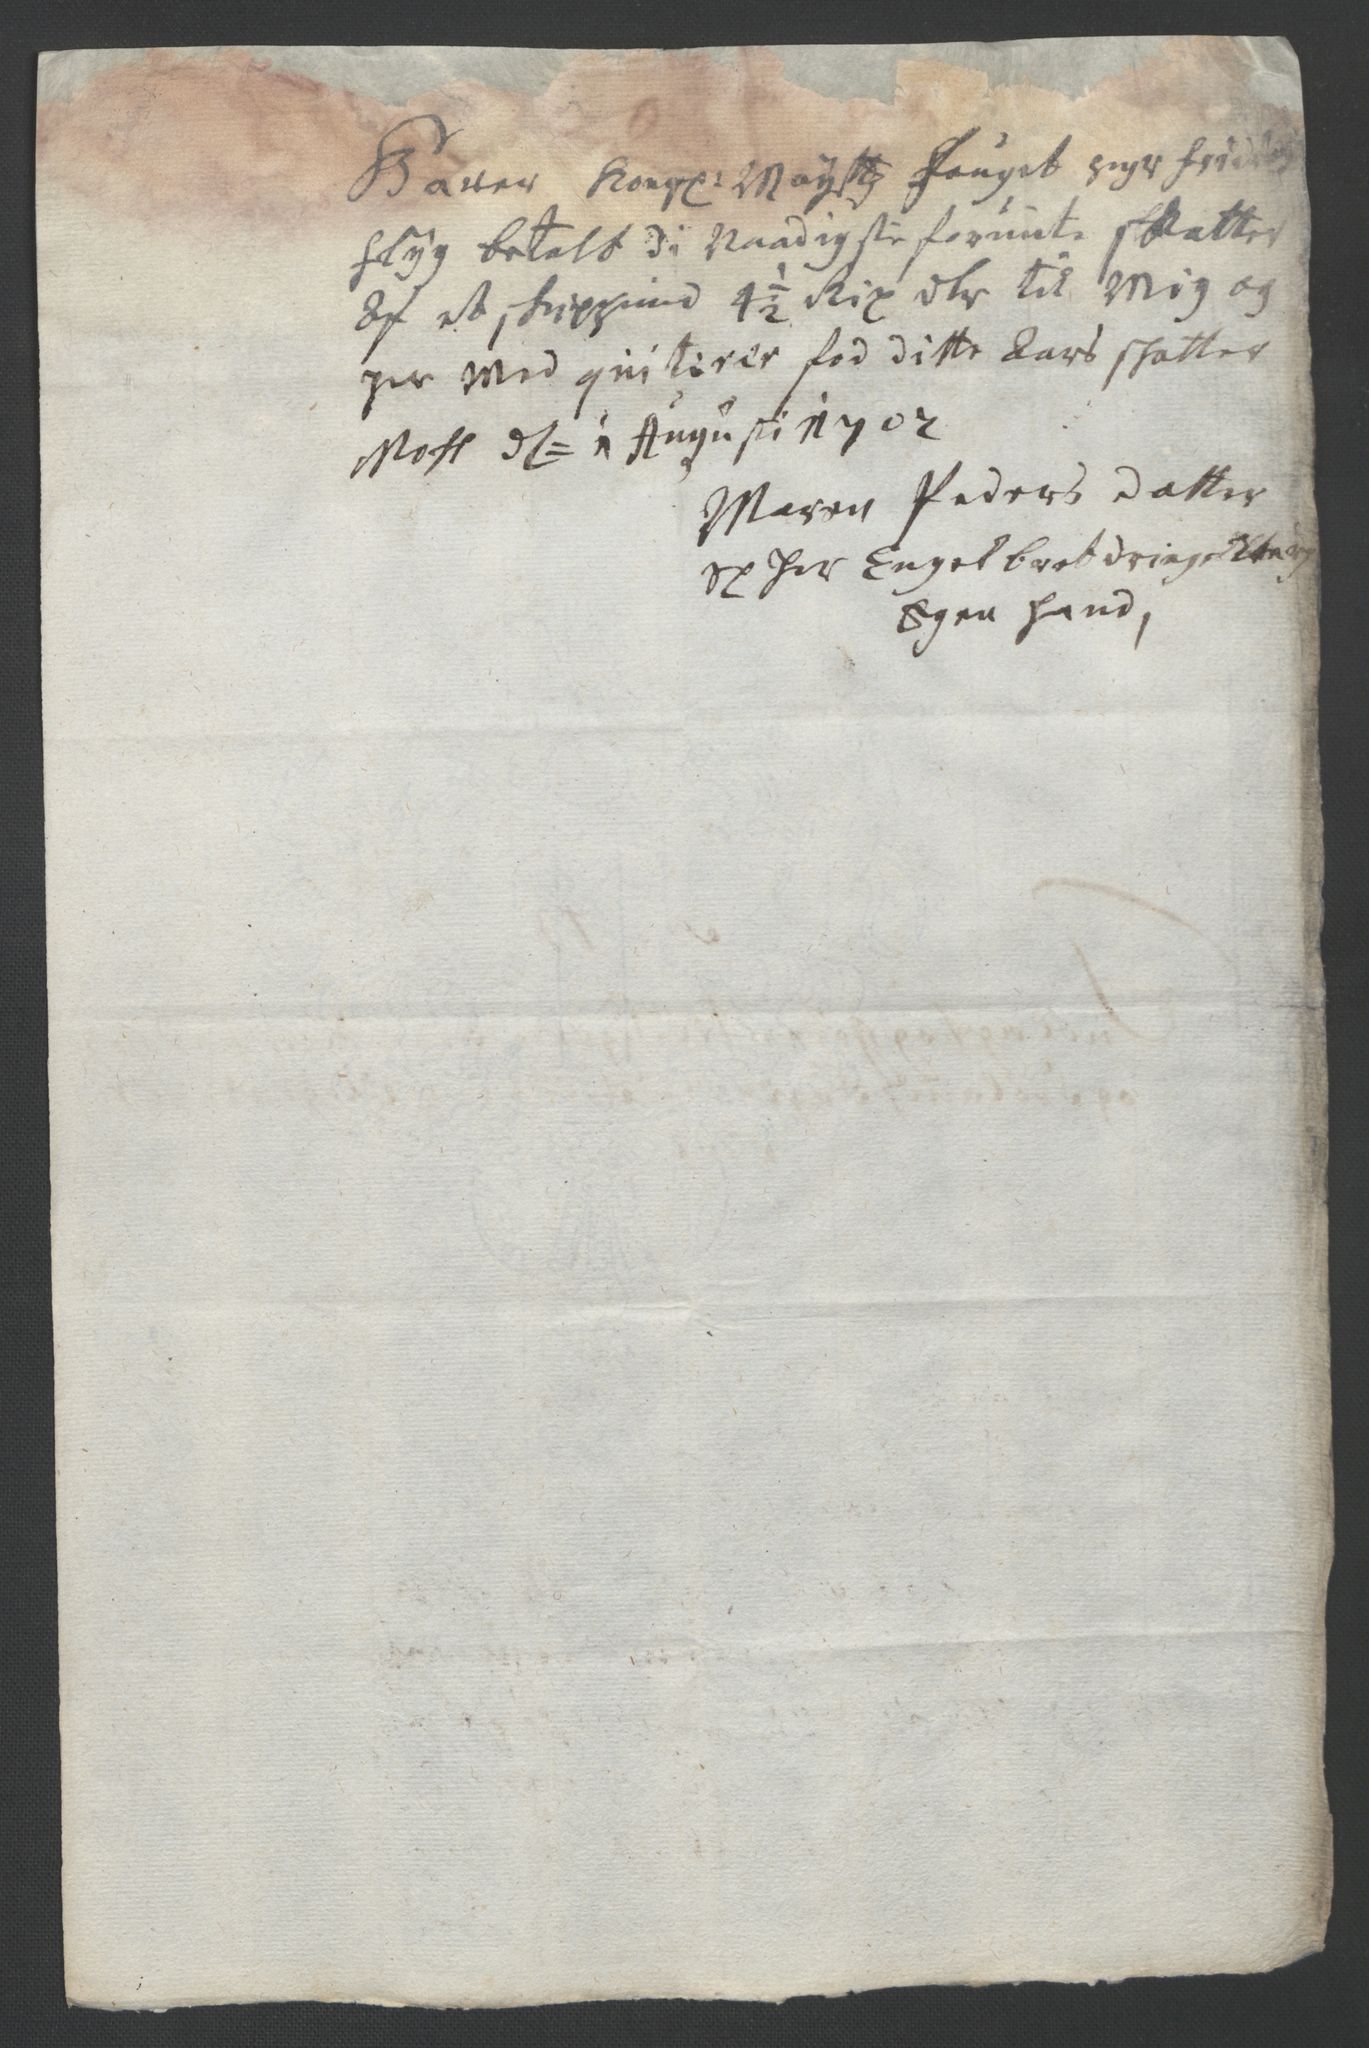 Haver Kongl: Maÿtts Fougel Signr Fridrich
Flÿg betalt di Naadigste forunte skatter
Af et skippund 4½ Rix dlr til Mig og
her Med quiterer for ditte Aars skatter
Moss dl= 1 Augusti 1702
Maren Peders datter
Sl Her Engelbret
Egen Hand,